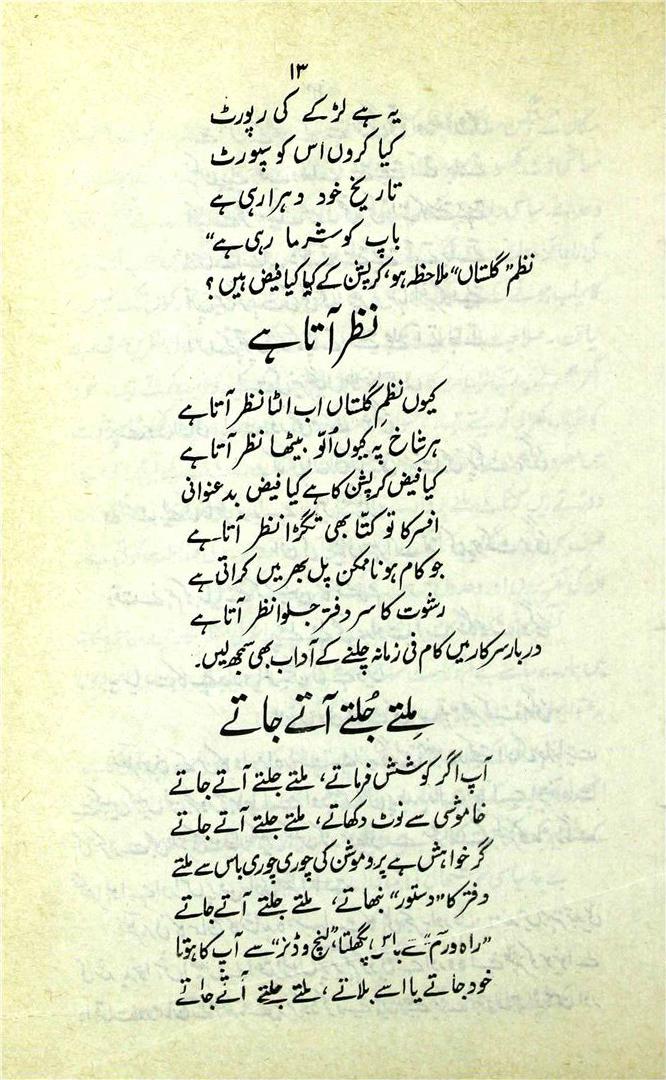 ۱۳
یہ ہے لڑکے کی رپورٹ
کیا کروں اس کو سپورٹ
تاریخ خود دہرا رہی ہے
باپ کو شرما رہی ہے“
نظم ”گلستاں“ ملاحظہ ہو، کرپشن کے کیا کیا فیض ہیں؟
نظر آتا ہے
کیوں نظمِ گلستاں اب الٹا نظر آتا ہے
ہر شاخ پہ کیوں اُلّو بیٹھا نظر آتا ہے
کیا فیض کرپشن کا ہے کیا فیض بدعنوانی
افسر کا تو کتّا بھی تگڑا نظر آتا ہے
جو کام ہو ناممکن پل بھر میں کراتی ہے
رشوت کا سر دفتر جلوا نظر آتا ہے
دربار سرکار میں کام فی زمانہ چلنے کے آداب بھی سمجھ لیں۔
مِلتے جُلتے آتے جاتے
آپ اگر کوشش فرماتے، ملتے جلتے آتے جاتے
خاموشی سے نوٹ دکھاتے، ملتے جلتے آتے جاتے
گر خواہش ہے پروموشن کی چوری چوری باس سے ملتے
دفتر کا ”دستور“ نبھاتے، ملتے جلتے آتے جاتے
”راہ ورم“ سے باس پگھلتا، ”لنچ و ڈنر“ سے آپ کا ہوتا
خود جاتے یا اسے بلاتے، ملتے جلتے آتے جاتے